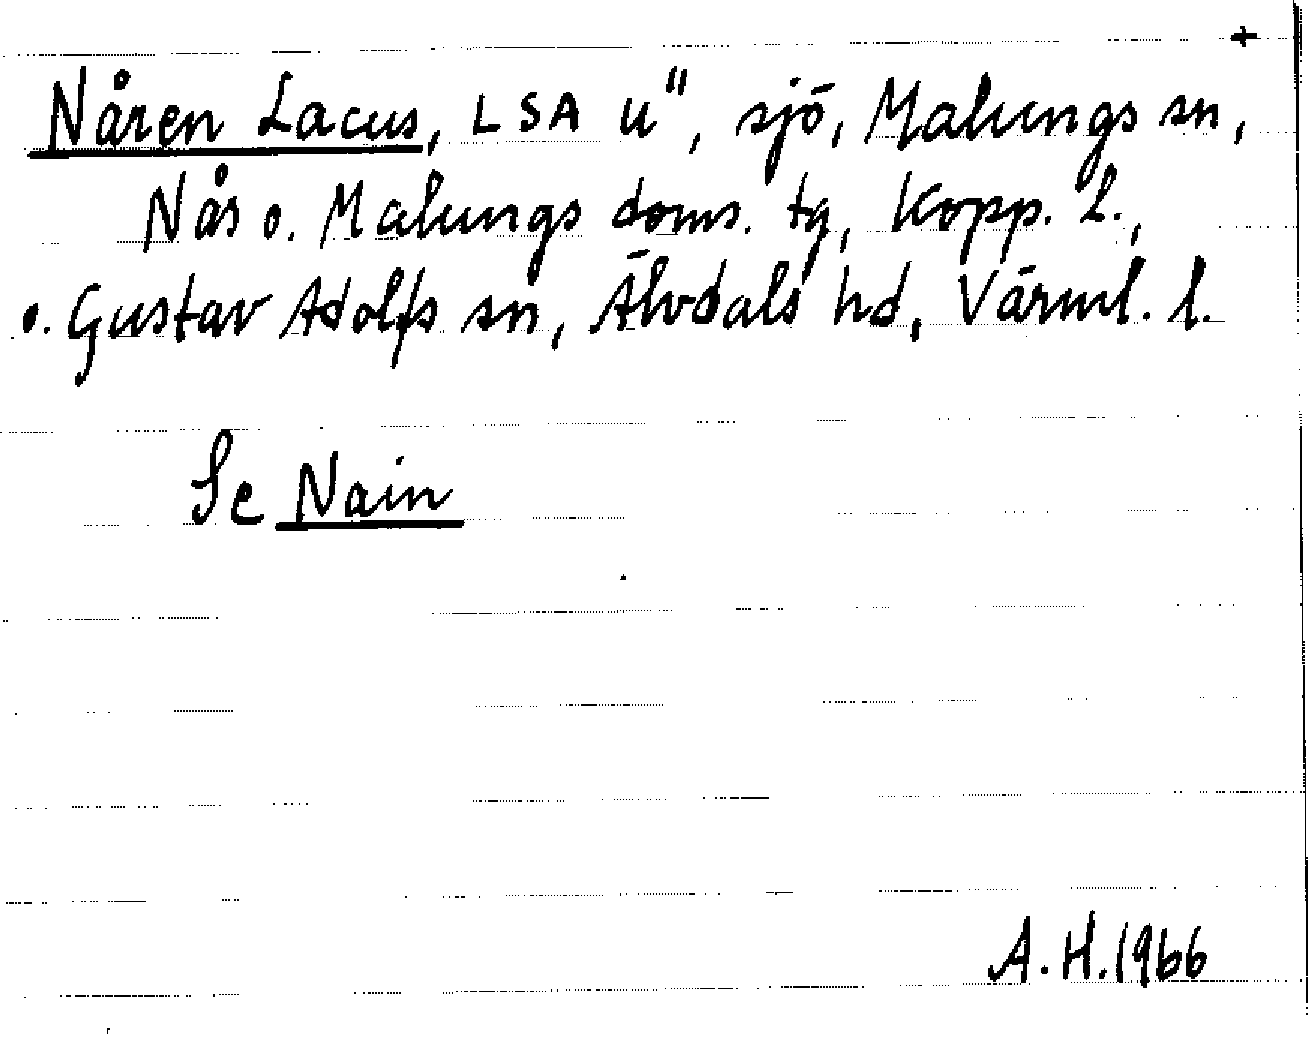 +
Nåren Lacus, LSA U", sjö, Malungs sn,
Nås o. Malungs doms. tg, Kopp. l.,
o. Gustav Adolfs sn, Älvdals hd, Värml. l.
Se Nain
A. H. 1966